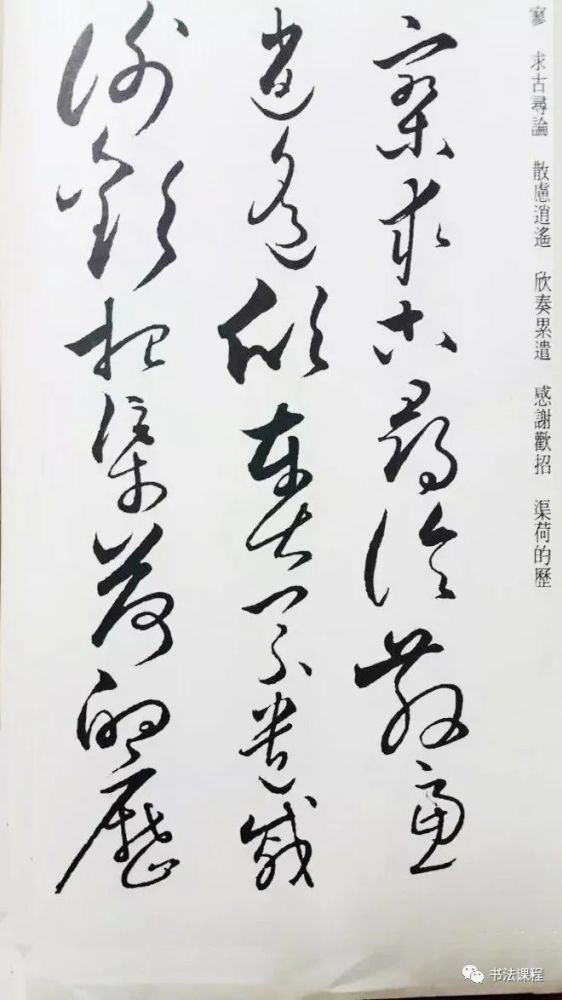 寥　求古尋論　散慮逍遙　欣奏累遣　感謝歡招　渠荷的歷
寥求古尋論散慮
逍遙欣奏累遣感
謝歡招渠荷的歷
书法课程